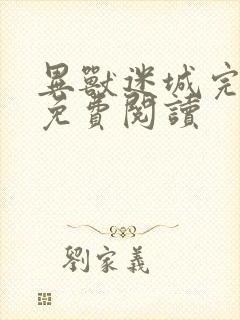 異獸迷城完
免費閱讀
劉家義